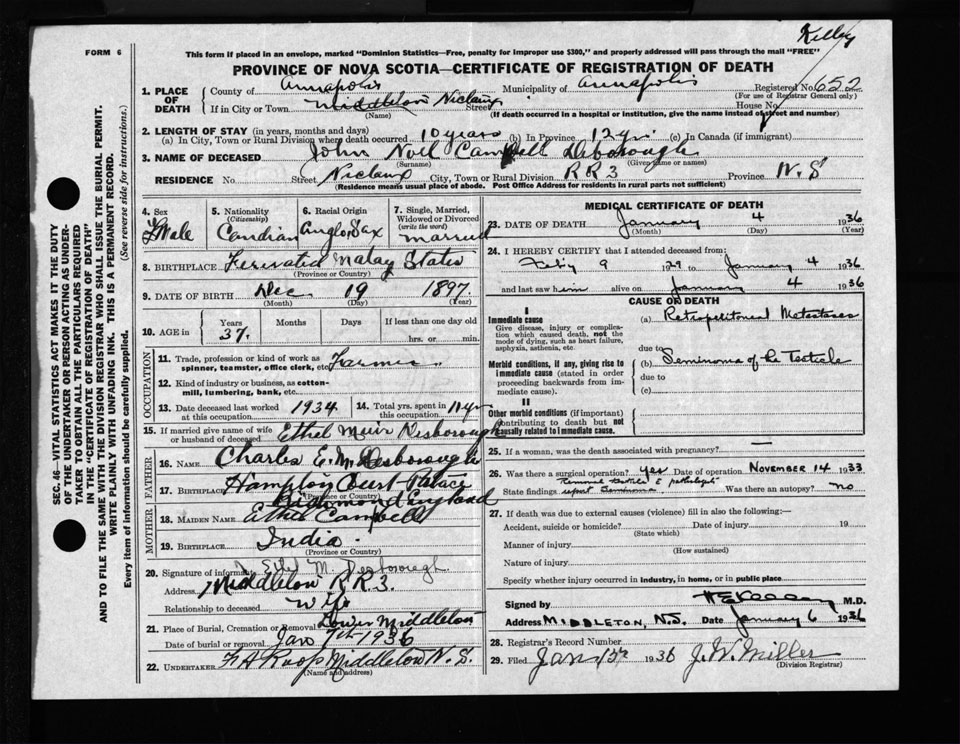 Kelley
FORM 6
This form if placed in an envelope, marked "Dominion Statistics—Free, penalty for improper use $300," and properly addressed will pass through the mail "FREE"
PROVINCE OF NOVA SCOTIA—CERTIFICATE OF REGISTRATION OF DEATH
1. PLACE OF DEATH County of Annapolis Municipality of Annapolis Registered No. 652
(For use of Registrar General only)
If in City or Town Middleton Nictaux Street House No.
(Name) (If death occurred in a hospital or institution, give the name instead of street and number)
2. LENGTH OF STAY (in years, months and days)
(a) In City, Town or Rural Division where death occurred 10 years (b) In Province 12 yr. (c) In Canada (if immigrant)
3. NAME OF DECEASED John Noil Campbell Desborough
(Surname) (Given name or names)
RESIDENCE No. Street Nictaux City, Town or Rural Division RR3 Province N.S
(Residence means usual place of abode. Post Office Address for residents in rural parts not sufficient)
4. Sex Male
5. Nationality (Citizenship) Candian
6. Racial Origin Anglo, Sax
7. Single, Married, Widowed or Divorced (write the word) married
8. BIRTHPLACE Malay States
(Province or Country)
9. DATE OF BIRTH Dec 19 1897
(Month) (Day) (Year)
10. AGE in Years Months Days If less than one day old
37. hrs. or min.
OCCUPATION
11. Trade, profession or kind of work as spinner, teamster, office clerk, etc. Farmer
12. Kind of industry or business, as cotton-mill, lumbering, bank, etc.
13. Date deceased last worked at this occupation 1934 14. Total yrs. spent in this occupation 11 yr
15. If married give name of wife or husband of deceased Ethel Muir Desborough
FATHER
16. NAME Charles E. M. Desborough
17. BIRTHPLACE Hampton Court Palace
(Province or Country)
Richmond England
MOTHER
18. MAIDEN NAME Ethel Campbell
19. BIRTHPLACE India
(Province or Country)
20. Signature of informant Ethel M. Desborough
Address Middleton RR3.
Relationship to deceased wife
21. Place of Burial, Cremation or Removal Lower Middleton
Date of burial or removal Jan 7th 1936
22. UNDERTAKER F A Roop Middleton N.S.
(Name and address)
MEDICAL CERTIFICATE OF DEATH
23. DATE OF DEATH January 4 1936
(Month) (Day) (Year)
24. I HEREBY CERTIFY that I attended deceased from:
Feby 9 1929 to January 4 1936
and last saw him alive on January 4 1936
CAUSE OF DEATH
I
Immediate cause
Give disease, injury or complication which caused death, not the mode of dying, such as heart failure, asphyxia, asthenia, etc.
(a) Retroperitoneal Metastases
due to
Morbid conditions, if any, giving rise to immediate cause (stated in order proceeding backwards from immediate cause).
(b) Seminoma of the Testicle
due to
(c)
II
Other morbid conditions (if important) contributing to death but not causally related to immediate cause.
25. If a woman, was the death associated with pregnancy? —
26. Was there a surgical operation? yes Date of operation NOVEMBER 14 1933
Removal testicle & pathologist
State findings report Seminoma Was there an autopsy? no
27. If death was due to external causes (violence) fill in also the following:—
Accident, suicide or homicide? Date of injury 19
(State which)
Manner of injury
(How sustained)
Nature of injury
Specify whether injury occurred in industry, in home, or in public place
Signed by M.D.
Address MIDDLETON, N.S. Date January 6 1936
28. Registrar's Record Number
29. Filed Jan 15th 1936 J. W. Miller
(Division Registrar)
SEC. 46—VITAL STATISTICS ACT MAKES IT THE DUTY
OF THE UNDERTAKER OR PERSON ACTING AS UNDERTAKER TO OBTAIN ALL THE PARTICULARS REQUIRED
IN THE "CERTIFICATE OF REGISTRATION OF DEATH"
AND TO FILE THE SAME WITH THE DIVISION REGISTRAR WHO SHALL ISSUE THE BURIAL PERMIT.
WRITE PLAINLY WITH UNFADING INK. THIS IS A PERMANENT RECORD.
Every item of information should be carefully supplied. (See reverse side for instructions.)